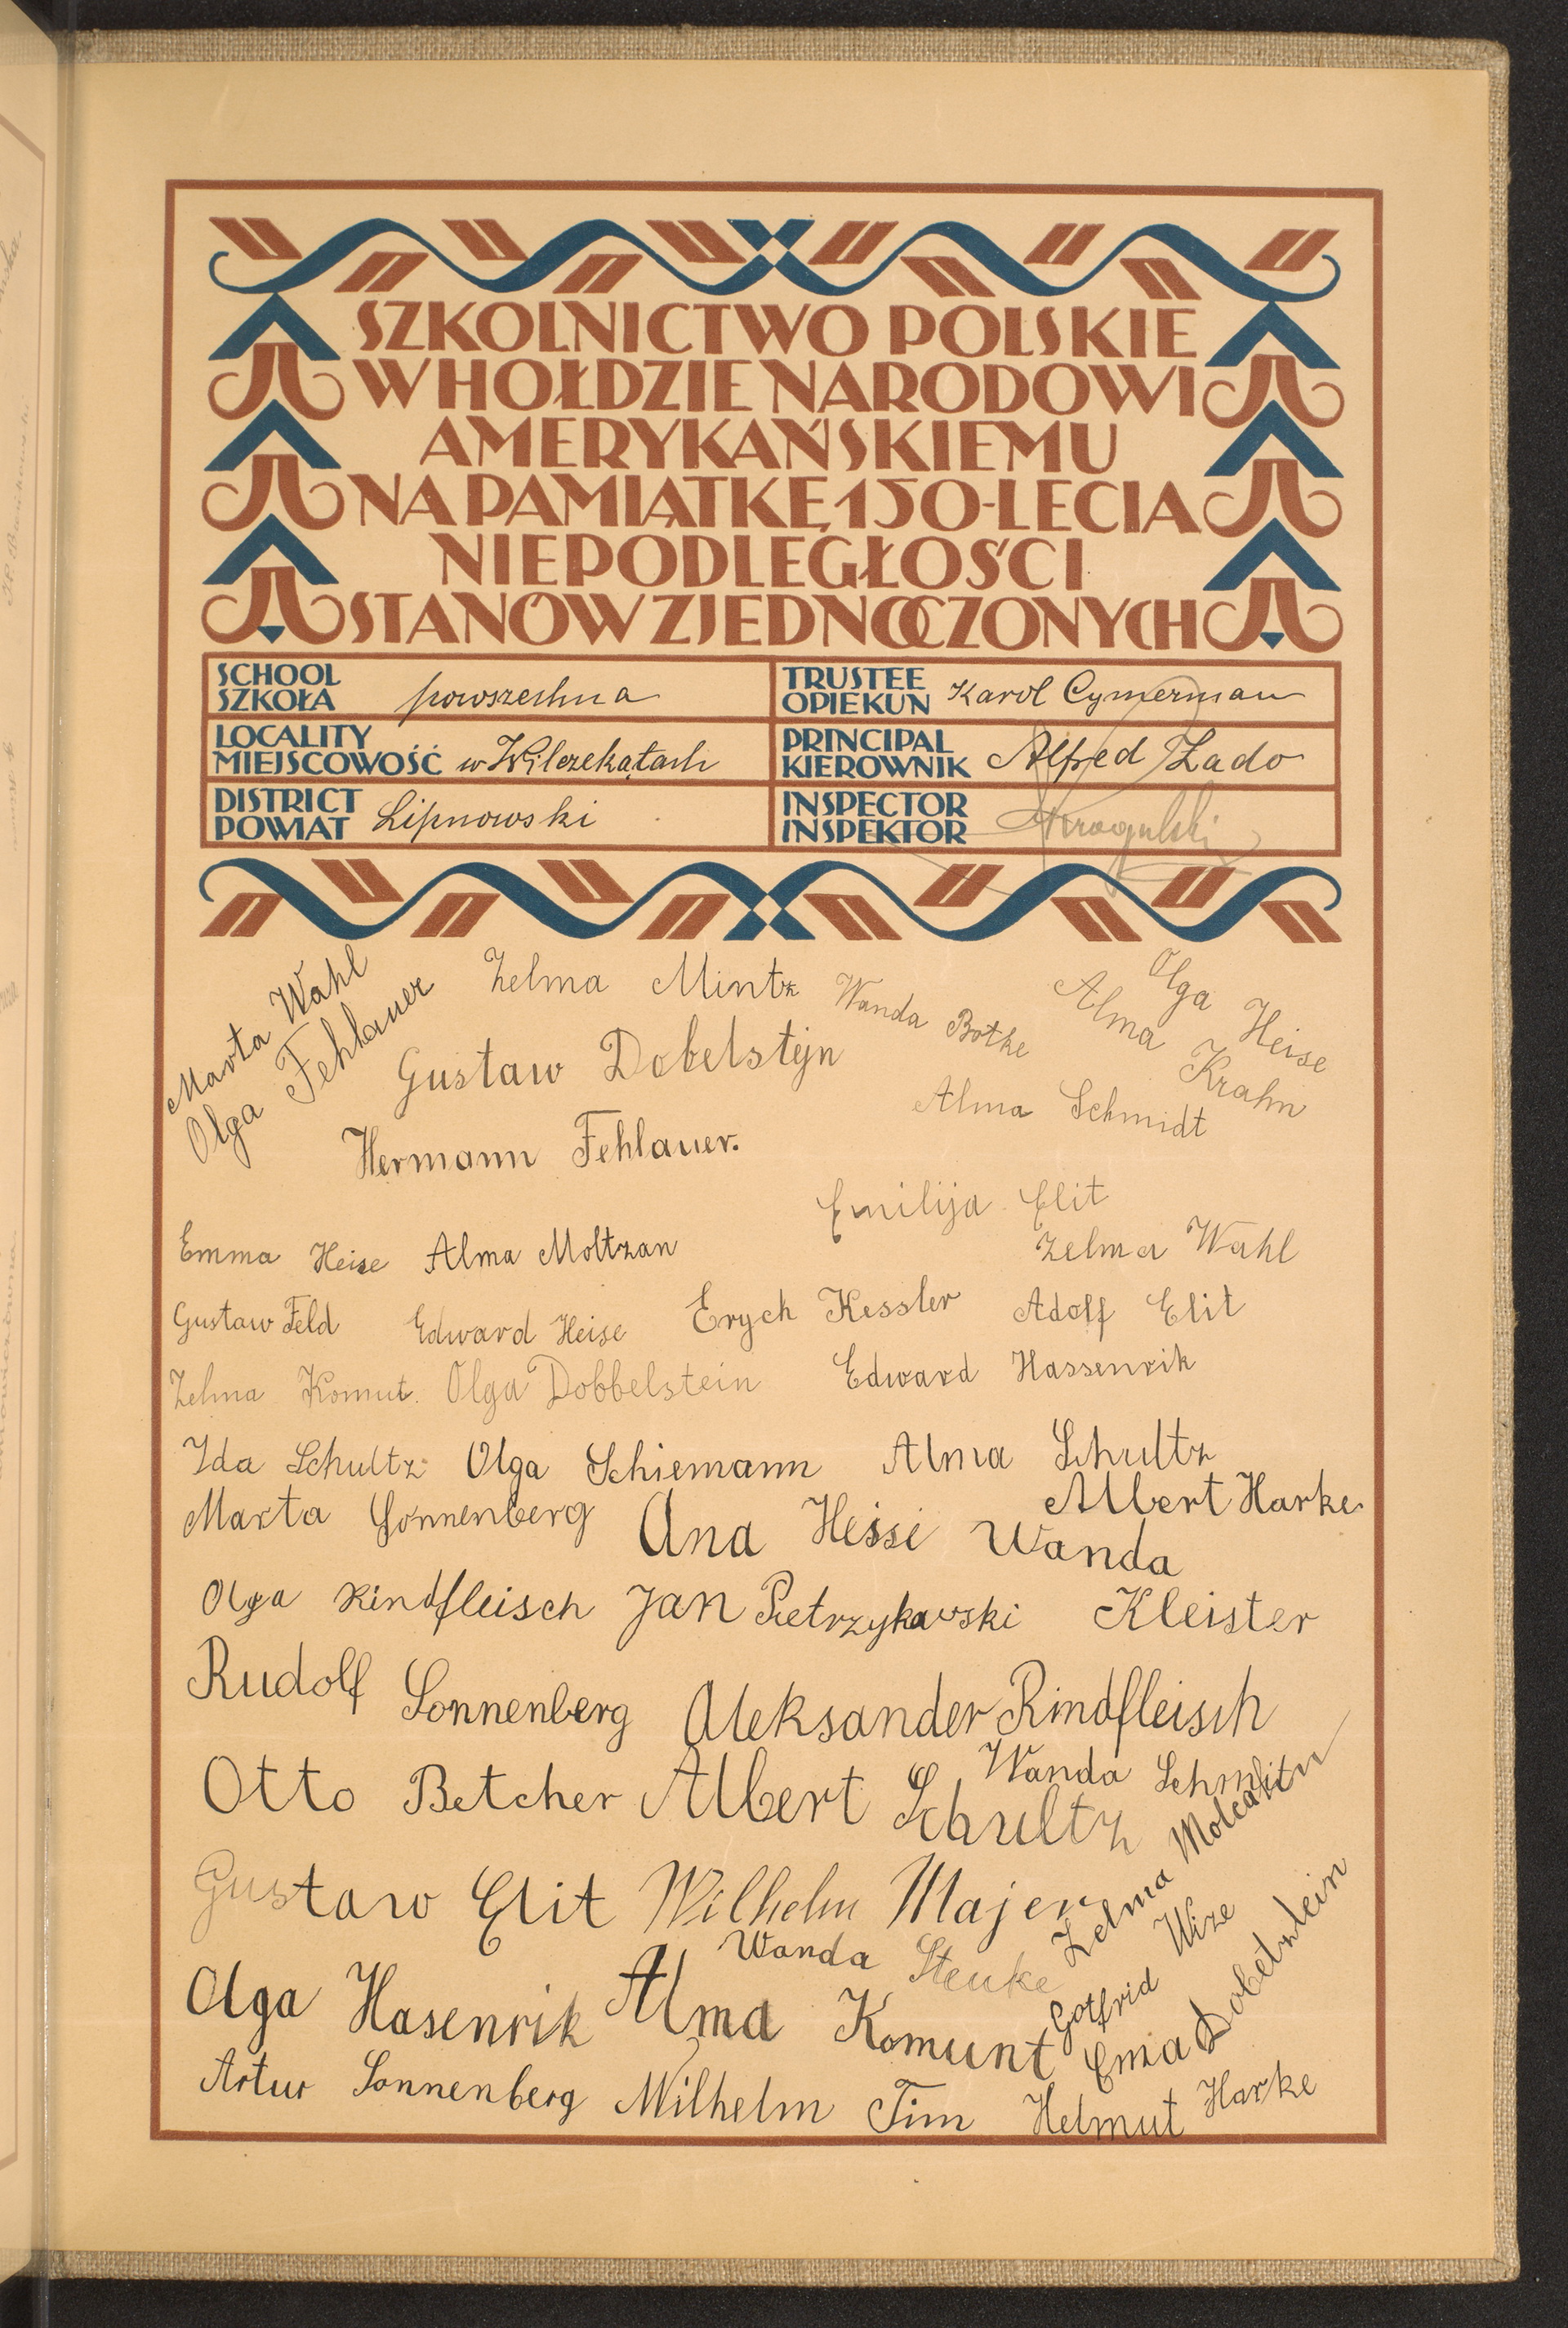 SZKOLNICTWO POLSKIE
W HOŁDZIE NARODOWI
AMERYKAŃSKIEMU
NA PAMIĄTKĘ 150-LECIA
NIEPODLEGŁOŚCI
STANÓW ZJEDNOCZONYCH
SCHOOL
SZKOŁA powszechna
TRUSTEE
OPIEKUN Karol Cymerman
LOCALITY
MIEJSCOWOŚĆ w Wilczekątach
PRINCIPAL
KIEROWNIK Alfred Zado
DISTRICT
POWIAT Lipnowski
INSPECTOR
INSPEKTOR
Marta Wahl
Olga Fehlauer
Zelma Mintz
Wanda Botke
Olga Heise
Alma Krahn
Gustaw Dobelstejn
Alma Schmidt
Hermann Fehlauer.
Emilija Elit
Emma Heise Alma Moltzan
Zelma Wahl
Gustaw Feld Edward Heise Erych Kessler Adolf Elit
Zelma Komut. Olga Dobbelstein Edward Hassenrik
Ida Schultz Olga Schiemann Alma Schultz
Marta Sonnenberg Ana Heisse Albert Harke
Wanda Kleister
Olga Rindfleisch Jan Pietrzykowski
Rudolf Sonnenberg Aleksander Rindfleisch
Otto Betcher Albert Schultz
Wanda
Zelma
Gustaw Elit Wilhelm Majer
Wanda Steuke
Gotfrid Wize
Olga Hasenrik Alma Komunt
Ema Dobelztein
Artur Sonnenberg Wilhelm Tim Helmut Harke